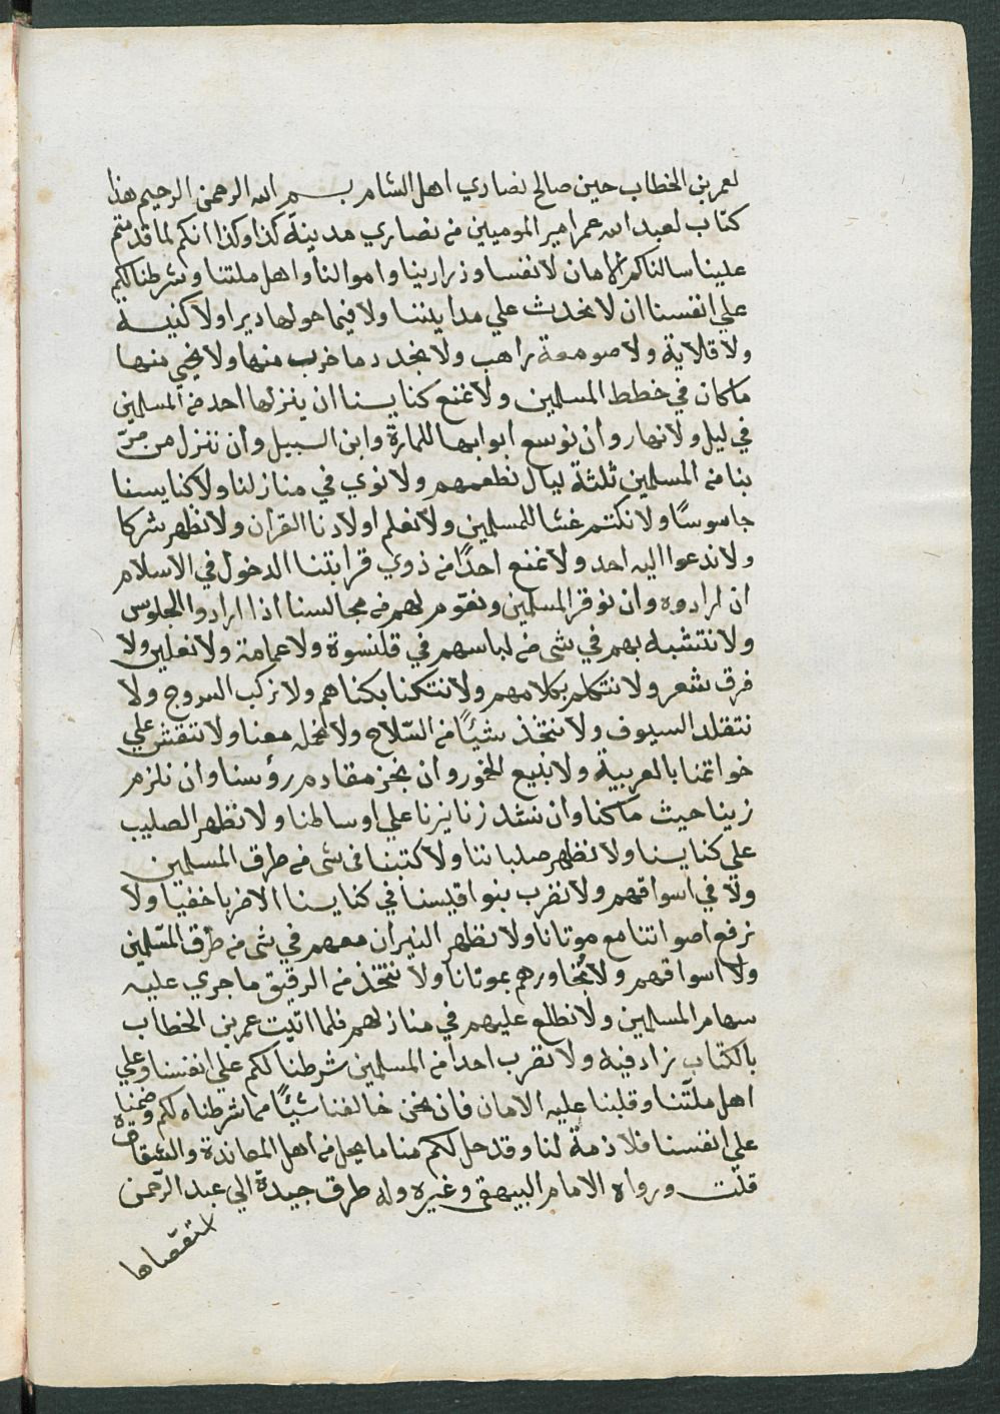 لعمر بن الخطاب حين صالح نصاري اهل الشام بسم الله الرحمن الرحيم هذا
كتاب لعبد الله عمر امير المومينن من نصاري مدينة كذا وكذا انكم لما قدمتم
علينا سالناكم الامان لانفسنا وذرارينا واموالنا واهل ملتنا وشرطنا لكم
علي انفسنا ان لا نحدث علي مدايننا ولا فيما حولها ديرا ولا كنيسة
ولا قلاية ولا صومعة راهب ولا نجدد ما خرب منها ولا نحيي منها
ما كان في خطط المسلمين ولا نمنع كنايسنا ان ينزلها احد من المسلمين
في ليل ولا نهار وان نوسع ابوابها للمارة وابن السبيل وان ننزل من مرّ
بنا من المسلمين ثلثة ليال نطعمهم ولا نوي في منازلنا ولا كنايسنا
جاسوسًا ولا نكتم غشا للمسلمين ولا نعلم اولادنا القران ولا نظهر شركا
ولا ندعوا اليه احد ولا نمنع احدًا من ذوي قرابتنا الدخول في الاسلام
ان ارادوه وان نوقر المسلمين ونقوم لهم من مجالسنا اذا ارادوا الجلوس
ولا نتشبه بهم في شى من لباسهم في قلنسوة ولا عمامة ولا نعلين ولا
فرق شعر ولا نتكلم بكلامهم ولا نتكنا بكناهم ولا نركب السروج ولا
نتقلد السيوف ولا نتخذ شيئًا من السّلاح ولا نحمله معنا ولا نتقش علي
خواتمنا بالعربية ولا نبيع الخمور وان نجز مقادم رؤسنا وان نلزم
زينا حيث ما كنا وان نشد زنانيرنا علي اوساطنا ولا نظهر الصليب
علي كنايسنا ولا نظهر صلباننا ولا كتبنا فى شى من طرق المسلمين
ولا في اسواقهم ولا نضرب بنواقيسنا في كنايسنا الا ضربا خفيا ولا
نرفع اصواتنا مع موتانا ولا نظهر النيران معهم في شى من طرق المسّلمين
ولا اسواقهم ولا نُجاورهم بموتانا ولا نتخذ من الرقيق ما جري عليه
سهام المسلمين ولا نطلع عليهم في منازلهم فلما اتيت عمر بن الخطاب
بالكتاب زاد فيه ولا نضرب احدا من المسلمين شرطنا لكم علي انفسنا وعلي
اهل ملتّنا وقلبنا عليه الامان فان نحن خالفنا شيئًا مما شرطناه لكم وضمناه
علي انفسنا فلا ذمة لنا وقد حل لكم منا ما يحل من اهل المعاندة والشقاق
قلت ورواه الامام البيهقى وغيره وله طرق جيدة الي عبد الرّحمن
استقصاها